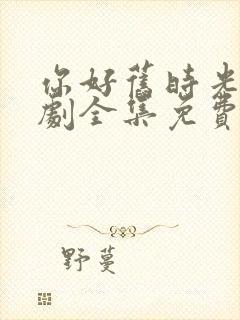 你好舊時光
劇全集免費
野蔓